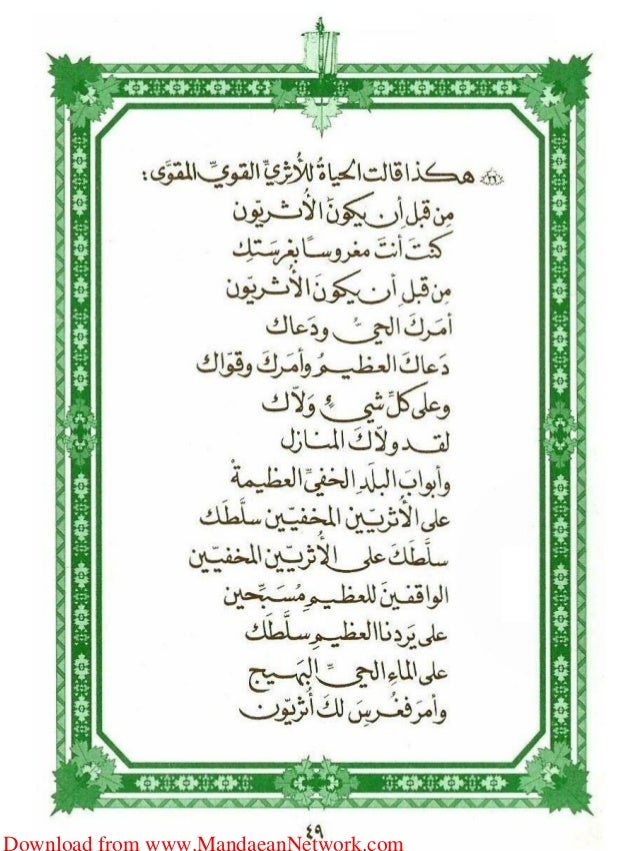 ﴿٢٦﴾ هكذا قالت الحياةُ للأُثريِّ القويِّ المقوَّى :
مِن قبلِ أن يكونَ الأُثريّون
كنتَ أنتَ مغروسًا بغرسَتِك
مِن قبلِ أن يكونَ الأُثريّون
أمرَكَ الحيُّ ودَعاك
دَعاكَ العظيمُ وأمرَكَ وقوّاك
وعلى كلِّ شيءٍ وَلاّك
لقد ولاّكَ المنازل
وأبوابَ البلَدِ الخفيِّ العظيمةْ
على الأُثريّين المخفيّين سلَّطَك
سلَّطَكَ على الأُثريّين المخفيّين
الواقفينَ للعظيمِ مُسَبِّحين
على يَردنا العظيمِ سلَّطَك
على الماءِ الحيِّ البَهيج
وأمرَ فغُرسَ لكَ أُثريّون
٤٩
Download from www.MandaeanNetwork.com